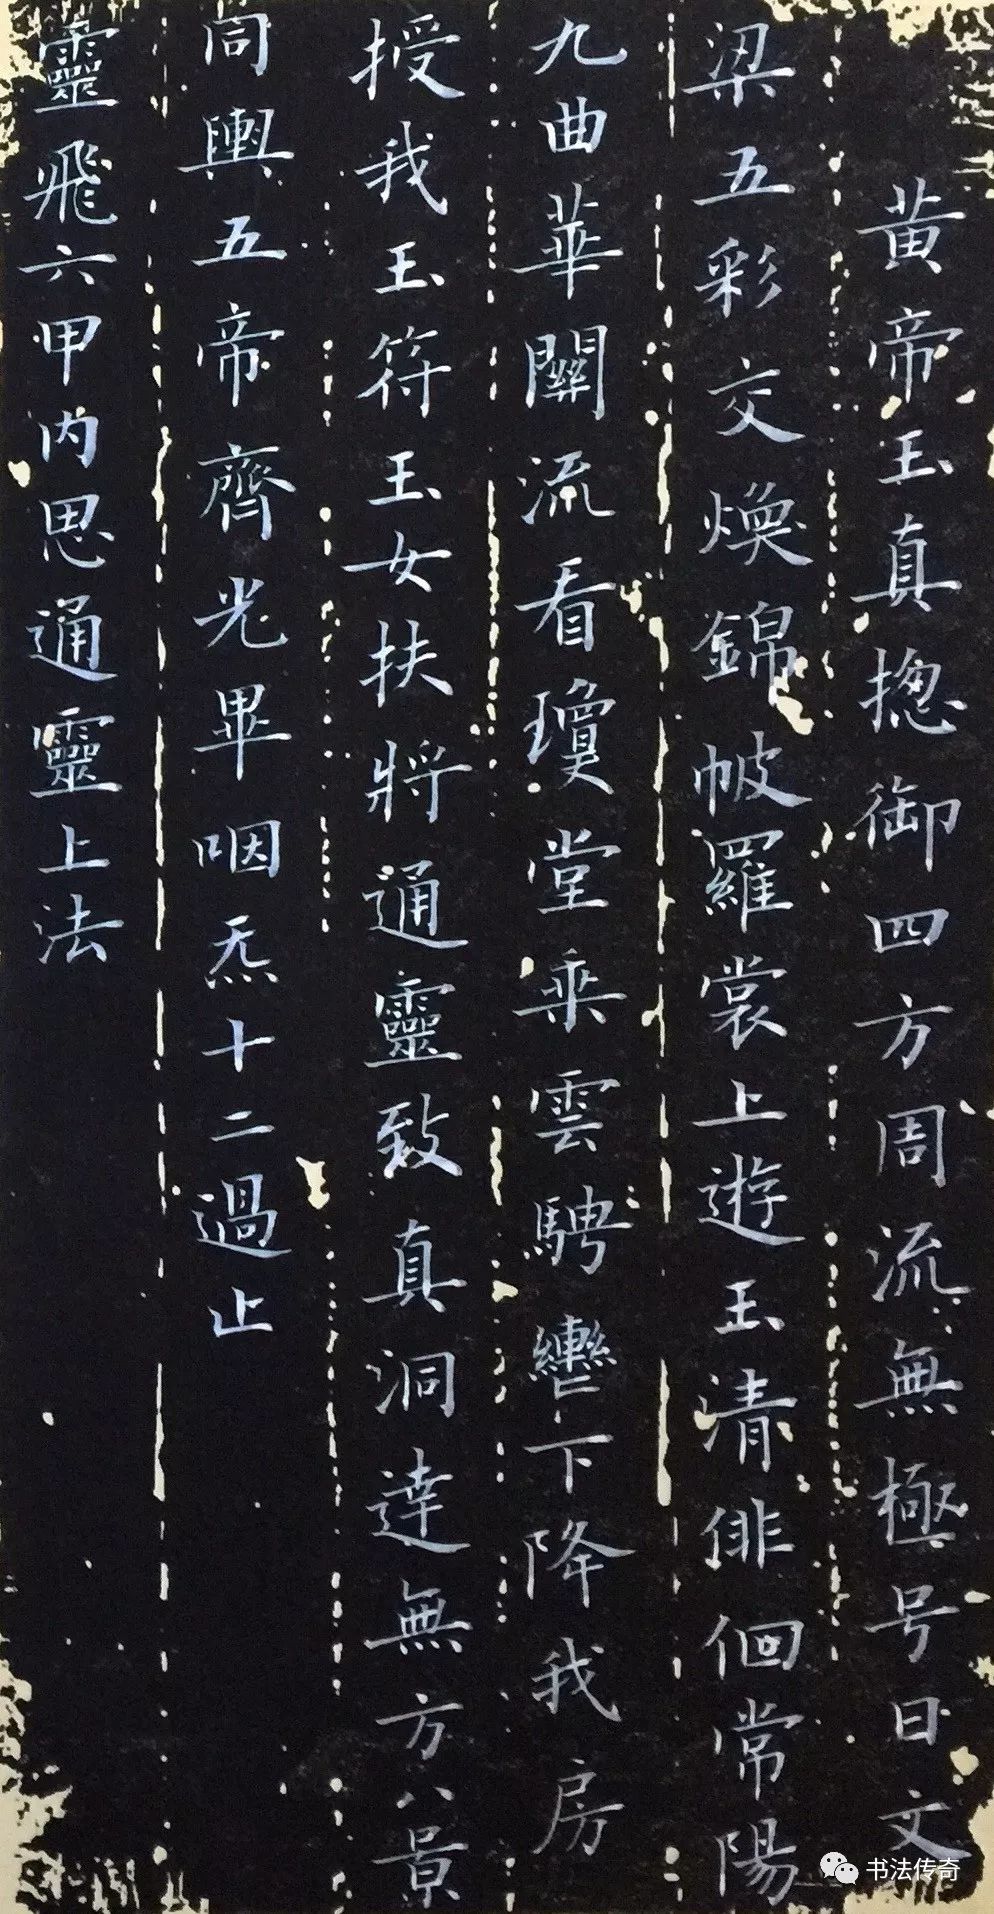 黄帝玉真揔御四方周流無極号曰文
梁五彩交煥錦帔羅裳上遊玉清俳佪常陽
九曲華關流看瓊堂乘雲騁轡下降我房
授我玉符玉女扶將通靈致真洞達無方八景
同輿五帝齊光畢咽炁十二過止
靈飛六甲内思通靈上法
书法传奇